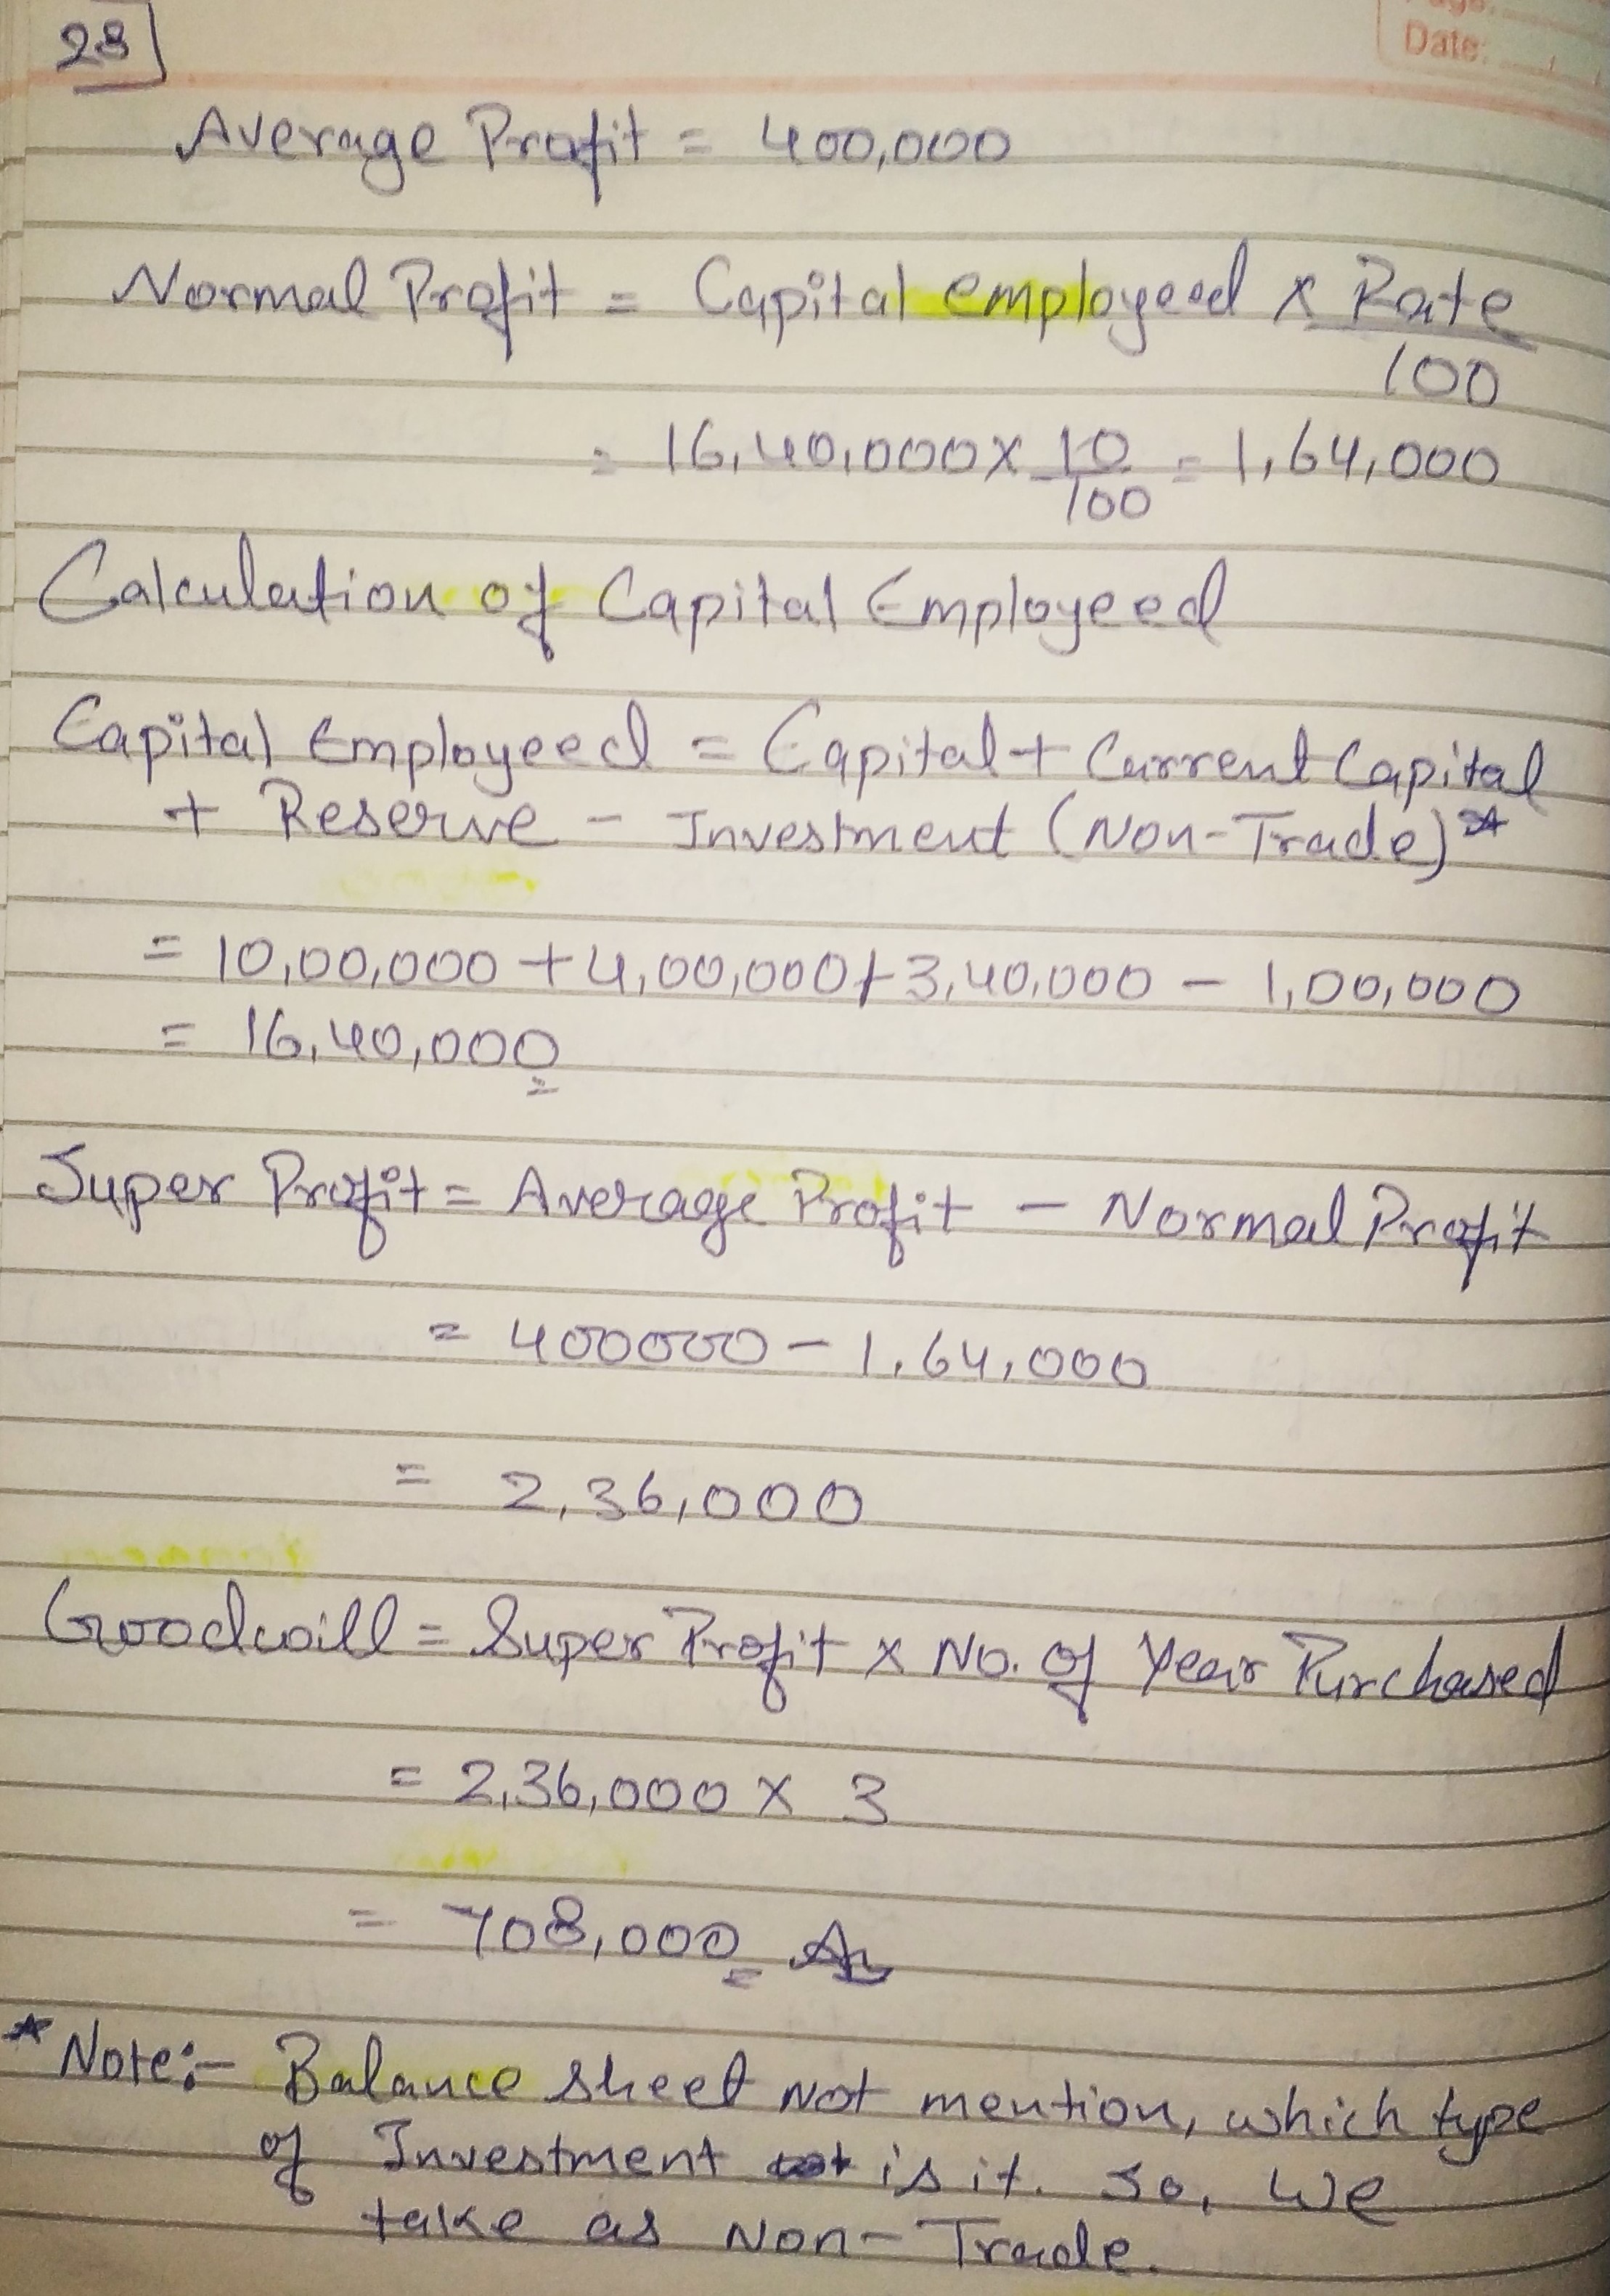 Page:
Date:
28
Average Profit = 400,000
Normal Profit = Capital employeed x Rate
100
= 16,40,000 x 10 = 1,64,000
100
Calculation of Capital Employeed
Capital Employeed = Capital + Current Capital
+ Reserve - Investment (Non-Trade)*
= 10,00,000 + 4,00,000 + 3,40,000 - 1,00,000
= 16,40,000
Super Profit = Average Profit - Normal Profit
= 400000 - 1,64,000
= 2,36,000
Goodwill = Super Profit x No. of Year Purchased
= 2,36,000 x 3
= 708,000 An
* Note:- Balance sheet not mention, which type
of Investment is it. So, we
take as Non-Trade.